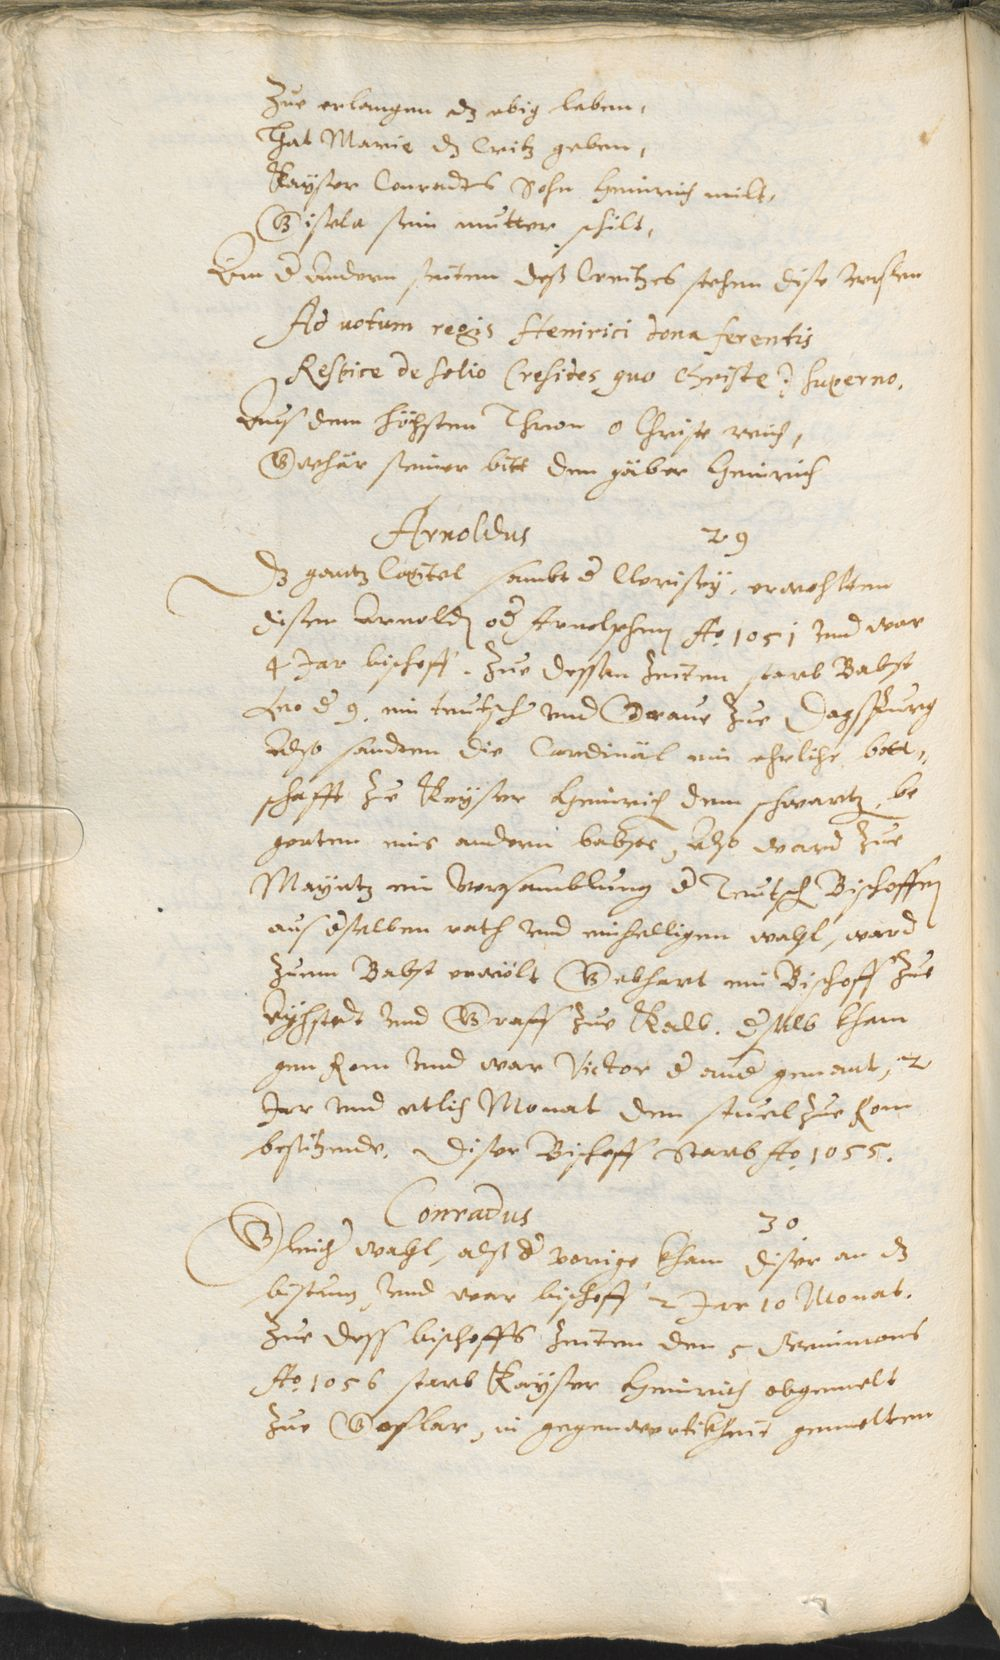 Zue erlangen dz ebig leben,
That Marie dz Creitz geben,
Kayser Conradts Sohn Heinrich milt,
Gisela sein mutter schilt,
An d andern seiten deß Creitzes stehen dise versen
Ad votum regis Heinrici dona ferentis
Respice de solio (resides quo Christe) superno.
Auß dem höchsten Thron o Christe reich,
Gwehär seiner bitt den gäber Heinrich
Arnoldus 29
Dz gantz Capitel sambt d Clerisey, erwohlten
disen Arnolds od Arnolphen Ao 1051 und war
4 Jar bischoff. Zue dessen Zeiten starb Babst
Leo d 9. ein teutscher und Grave Zue Dagspurg
Also sandten die Cardinäl ein ehrliche bott„
schafft Zue Kayser Heinrich dem schwartz, be
gerten eins andern babstes, Also ward Zue
Mayntz ein versamblung d Teutsch Bischoffen
aus dselben rath und einhelligen wahl, ward
Zuem Babst erwölt Gebhart ein Bischoff Zue
Aychstedt und Graff Zue Kalb. dselb kham
gen Rom und war Victor d and genant, 2
Jar und etlich Monat den stuel Zue Rom
besitzende. Diser Bischoff Starb Ao 1055.
Conradus 30
Gleicher wahl, alß d vorige kham diser an dz
bistum, und war bischoff 2 Jar 10 Monat.
Zue deß bischoffs Zeiten den 5 Weinmons
Ao 1056 starb Kayser Heinrich obgemelt
Zue Goslar, in gegenwertikheit gemelten